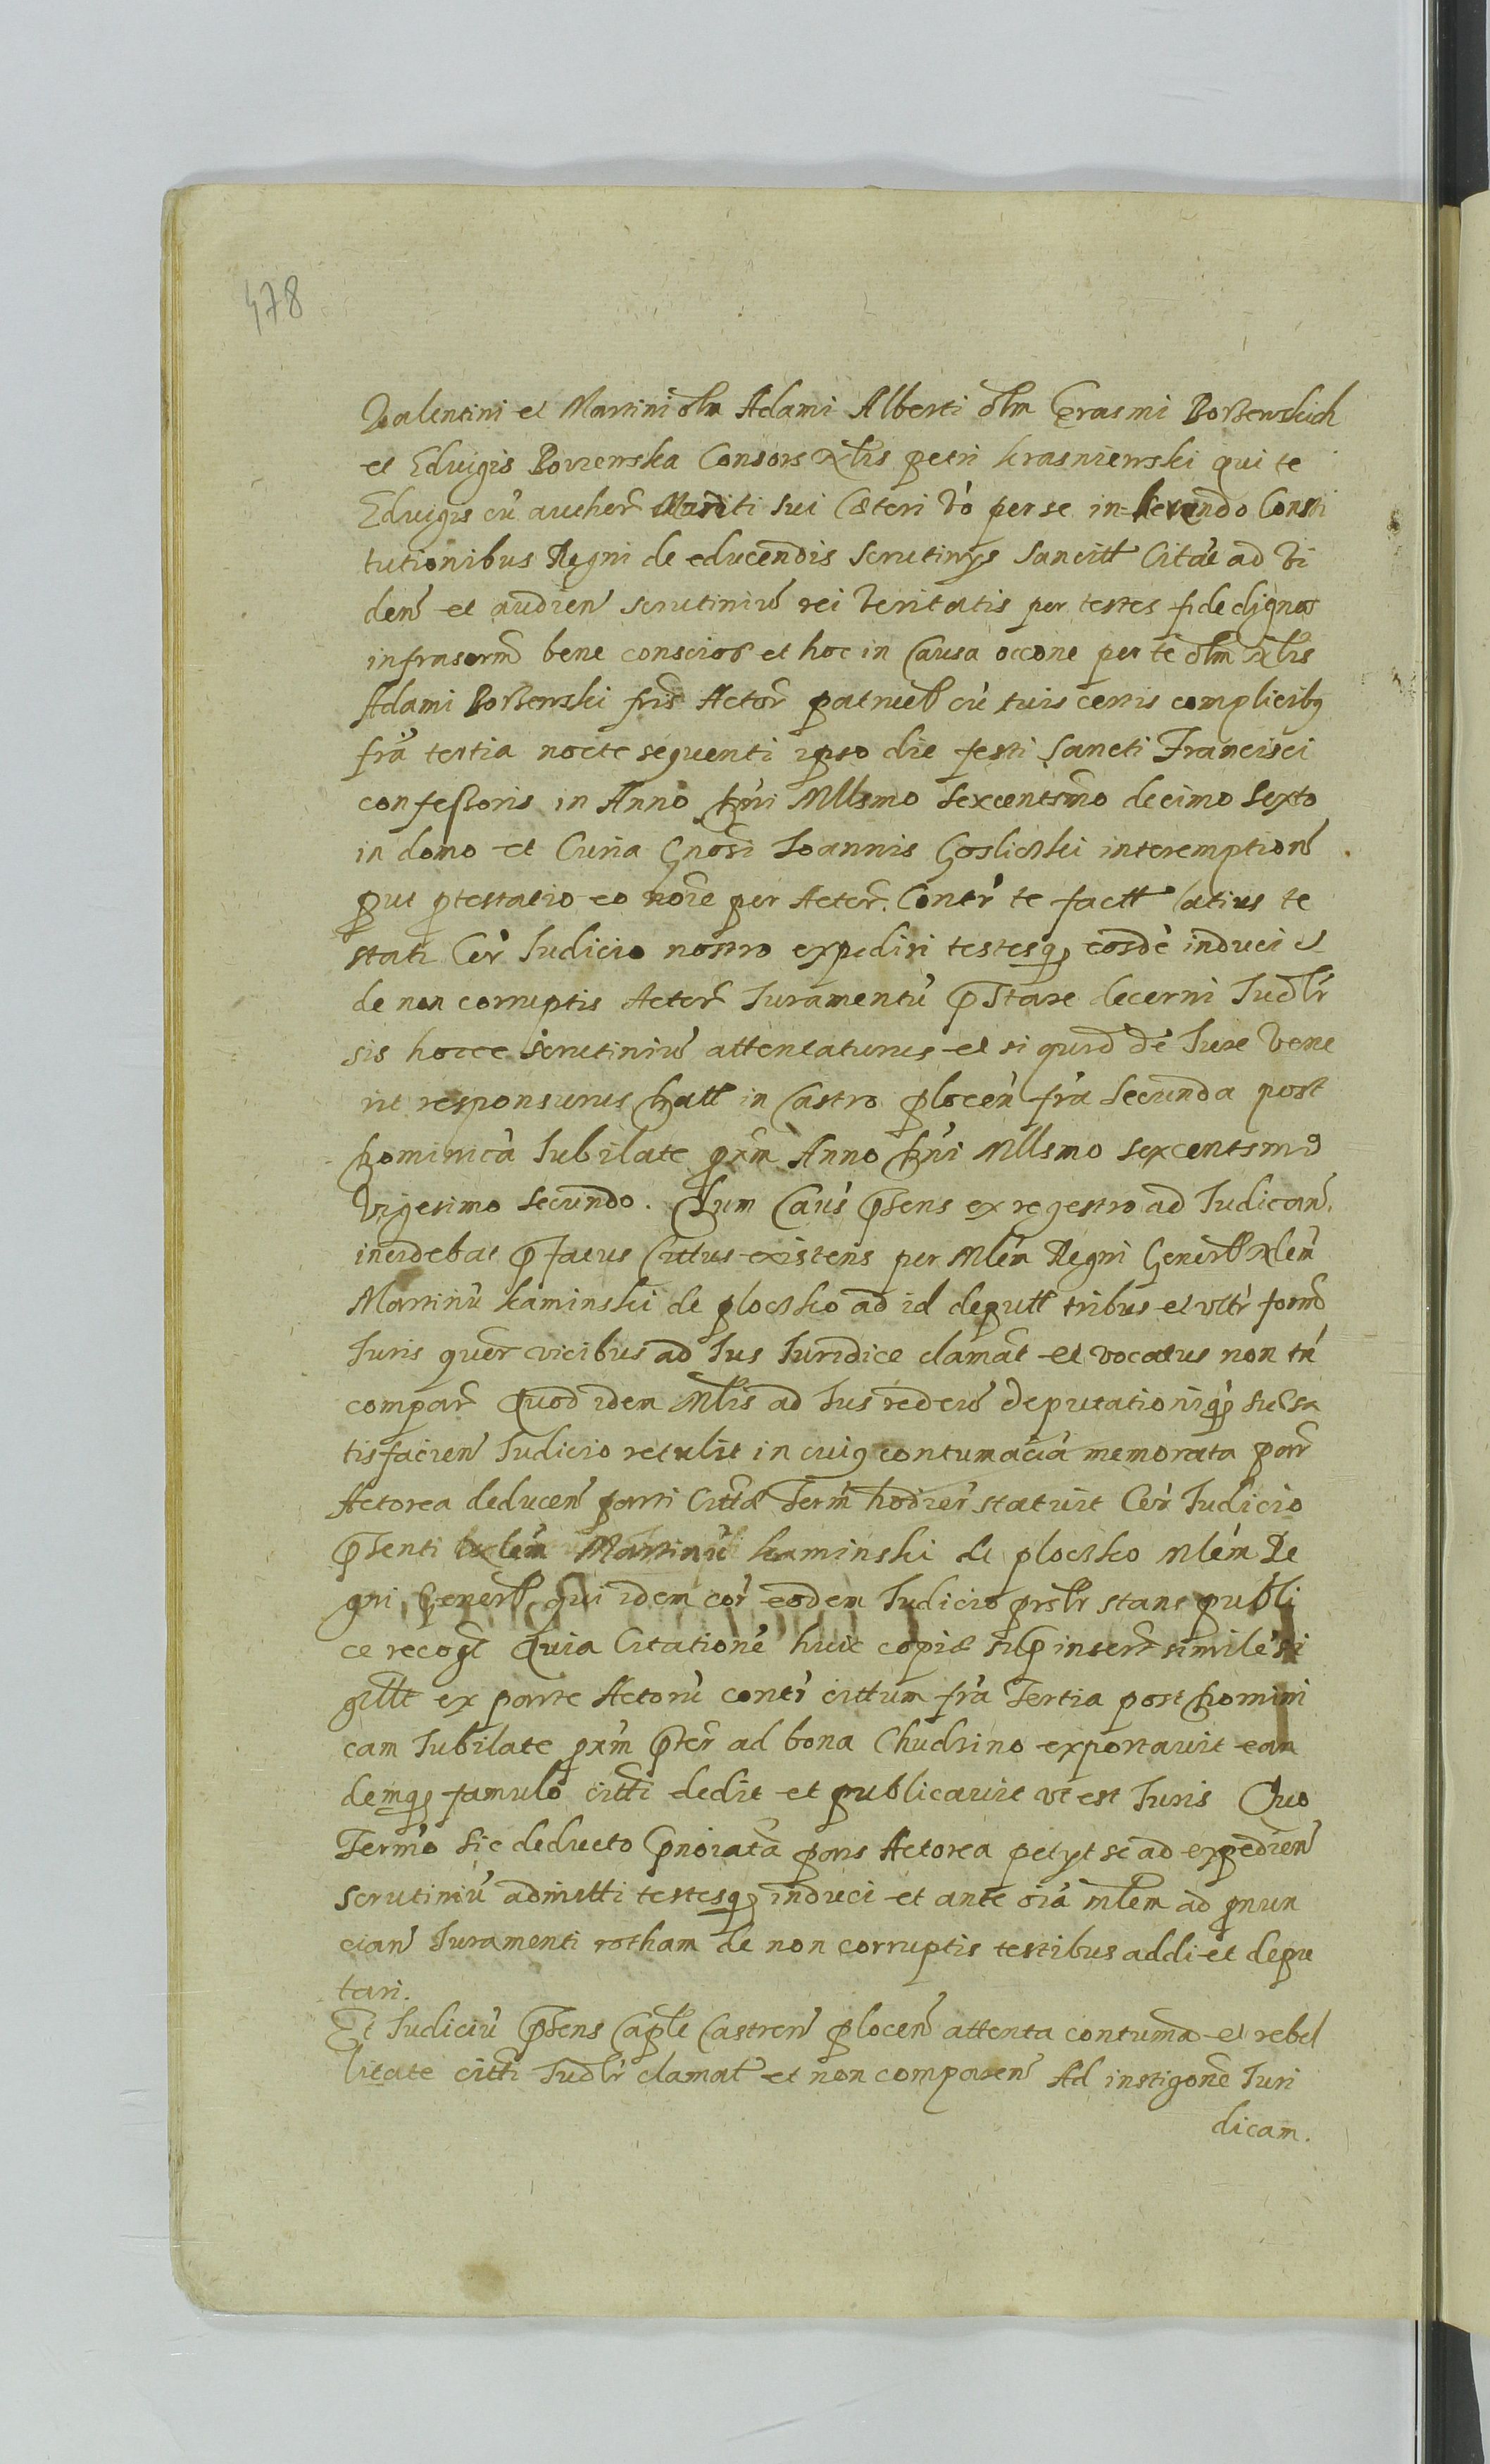 478
Valentini et Martini olm Adami Alberti olm Erasmi Borzewskich
et Edvigis Borzewska Consors Nlis petri Krasniewski qui te
Edvigis cũ author̃ Mariti sui Cæteri vo per se in-herendo Consti
tutionibus Regni de educendis Scrutinys Sancitt Citãe ad Vi
deñ et audień scrutiniũ rei Veritatis per testes fide dignos
infrascrm̃ bene conscios et hoc in Causa occōne per te olm Nlis
Adami Borzewski fris Actor̃ patruel cũ tuis certis complicibq
fr̃a tertia nocte sequenti ipso die festi Sancti Francisci
confessoris in Anno Dñi Mllsmo Sexcentsmo decimo Sexto
in domo et Curia Gnosi Ioannis Goslicski interemption̄
put ptestatio eo noĩe per Actor̃. Contr̀ te factt latius te
statr Cor̀ Iudicio nostro expediri testesq eosdẽ induci et
de non corruptis Actor̃ Iuramentũ pstare decerni Iudlr
sis hocce Scrutiniũ attentaturus et si quid de Iure Vene
rit responsurus Datt in Castro plocen̄ fr̃a Secunda post
Dominicã Iubilate pxm̃ Anno Dñi Mllsmo sexcentsmo
Vigesimo Secundo. Dum Caus̀ psens ex regestro ad Iudican̄.
incidebat pfatus Cittus existens per Mlem̃ Regni Generl Nlem̃
Martinũ Kaminski de plocsko ad id deputt tribus et vltr̀ form̃
Iuris quer̃ vicibus ad Ius Iuridice clamat̃ et vocatus non tñ
compar̃ Quod idem Mlis ad Ius redeuñ deputationiq suæ sa
tisfacień Iudicio retulit in cuiq contumaciã memorata par̃
Actorea deducen̄ parti Cittæ Term̃ hodier̃ statuit Cor̀ Iudicio
psenti Nlem̃ Martinũ Kaminski de plocsko Mlem̃ Re
gni Generl qui idem cor̀ eodem Iudicio prslr stans publi
ce recogt Quia Citationẽ huic copiæ sup insert̃ similẽ si
gillt ex parte Actorũ contr̀ cittum fr̃a Tertia post Domini
cam Iubilate pxm̃ pter̃ ad bona Chudzino exportavit ean
demq famulo citti dedit et publicavit vt est Iuris Quo
Termo sic deducto pnoiata pars Actorea petyt se ad expedień
scrutiniũ admitti testesq induci et ante oĩa mlem ad pnun
cian̄ Iuramenti rotham de non corruptis testibus addi et depu
tari.
Et Iudiciũ psens Caple Castren̄ plocen̄ attenta contuma et rebel
litate citti Iudlr clamat̃ et non comparen̄ Ad instigōne Iuri
dicam.